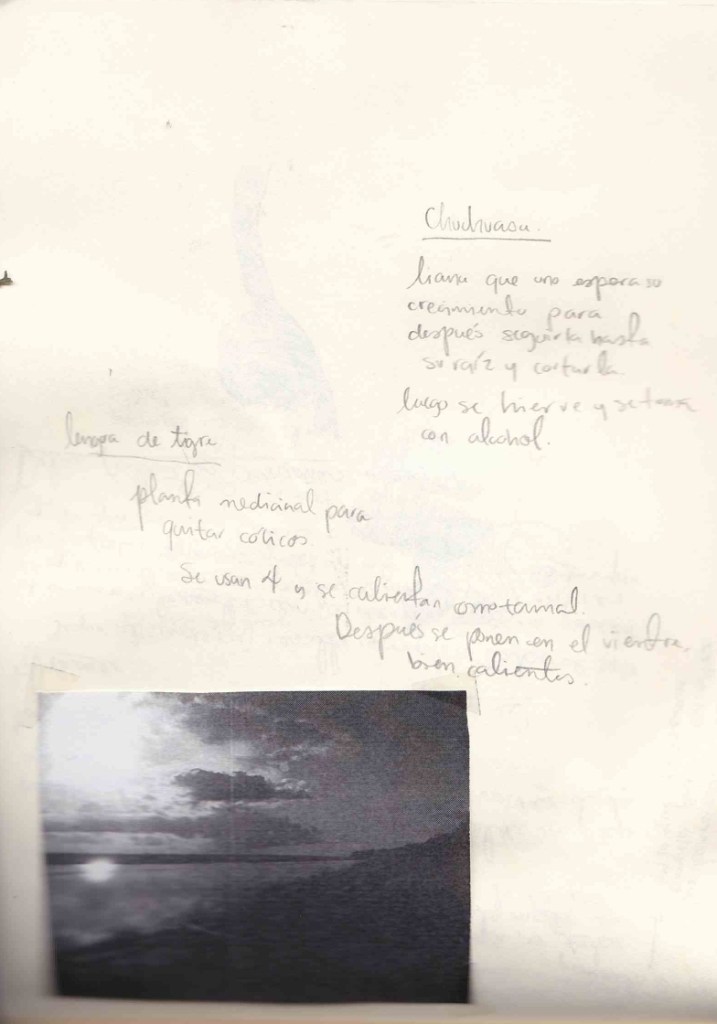 Chuchuasa.
liana que uno espera su
crecimiento para
después seguirla hasta
su raíz y cortarla.
luego se hierve y se toma
con alcohol.
lengua de tigre
planta medicinal para
quitar cólicos.
Se usan 4 y se calientan como tamal.
Después se ponen en el vientre,
bien calientes.